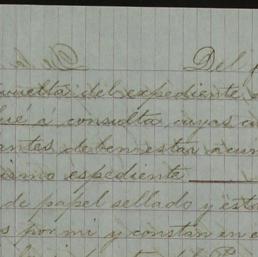 Del
vuelta del expediente
á consulta, cuyas
antes deben estar á
ismo espediente
de papel sellado y esto
s por mi y constan en e